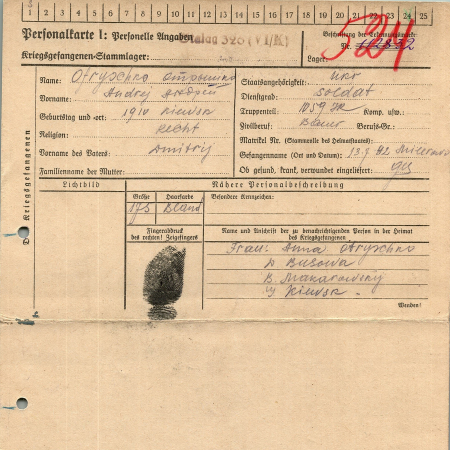 1 2 3 4 5 6 7 8 9 10 11 12 13 14 15 16 17 18 19 20 21 22 23 24 25
Personalkarte I: Personelle Angaben
Stalag 326 (VI/K)
Beschriftung der Erkennungsmarke
Nr.
Kriegsgefangenen-Stammlager:
Lager:
524
Name: Otryschko
Staatsangehörigkeit: Ukr
Vorname: Andrej Андрей
Dienstgrad: Soldat
Geburtstag und -ort: 1910 Kiewsk
Truppenteil: 1059 JR Komp. usw.
Religion:
Zivilberuf: Bauer Berufs-Gr.:
Vorname des Vaters: Dmitrij
Matrikel Nr. (Stammrolle des Heimatstaates):
Gefangennahme (Ort und Datum): 13.7.42
Familienname der Mutter:
Ob gesund, krank, verwundet eingeliefert:
Des Kriegsgefangenen
Lichtbild
Nähere Personalbeschreibung
Größe
Haarfarbe
Besondere Kennzeichen:
175 Bland
Fingerabdruck
des rechten! Zeigefingers
Name und Anschrift der zu benachrichtigenden Person in der Heimat
des Kriegsgefangenen
Frau: Anna Otryschko
D. Busowa
B. Makarowsky
Kiewsk
Wenden!